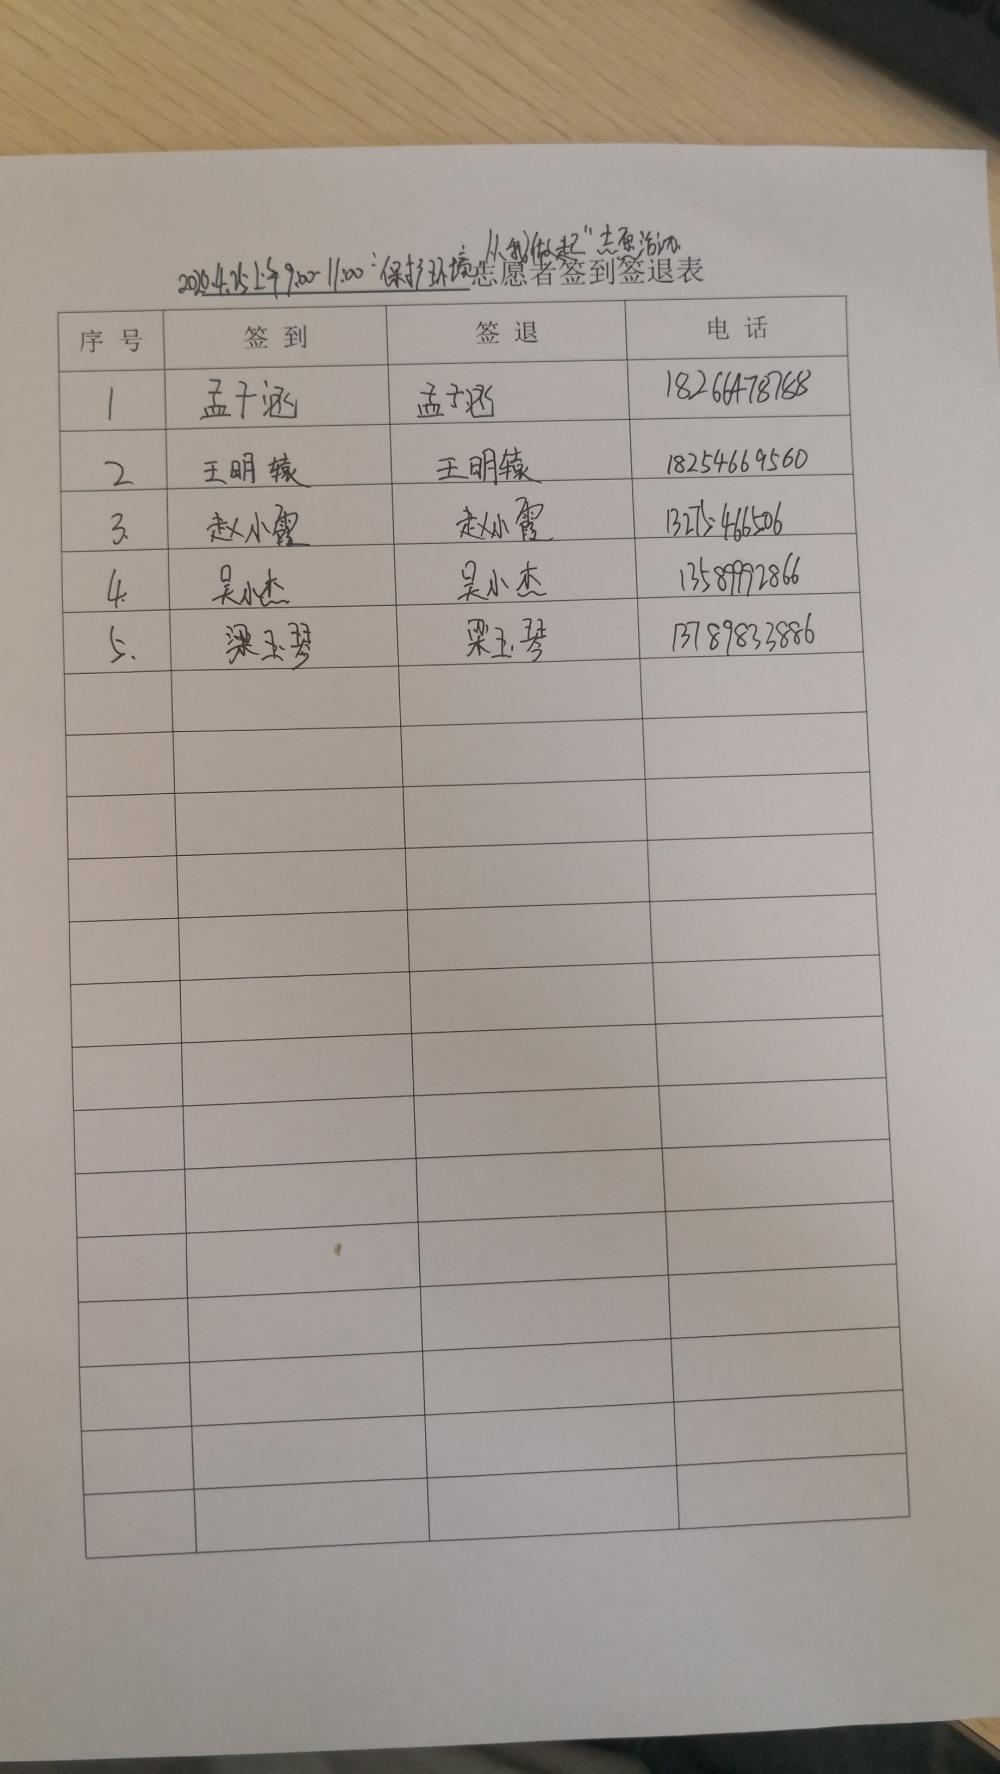 从我做起"志愿活动
2020.4.25上午9:00-11:00"保护环境 志愿者签到签退表
序号 签到 签退 电话
1 孟子涵 孟子涵 18266478768
2 王明辕 王明辕 18254669560
3. 赵小霞 赵小霞
4. 吴小杰 吴小杰 13589992866
5. 梁玉琴 梁玉琴 13789833886